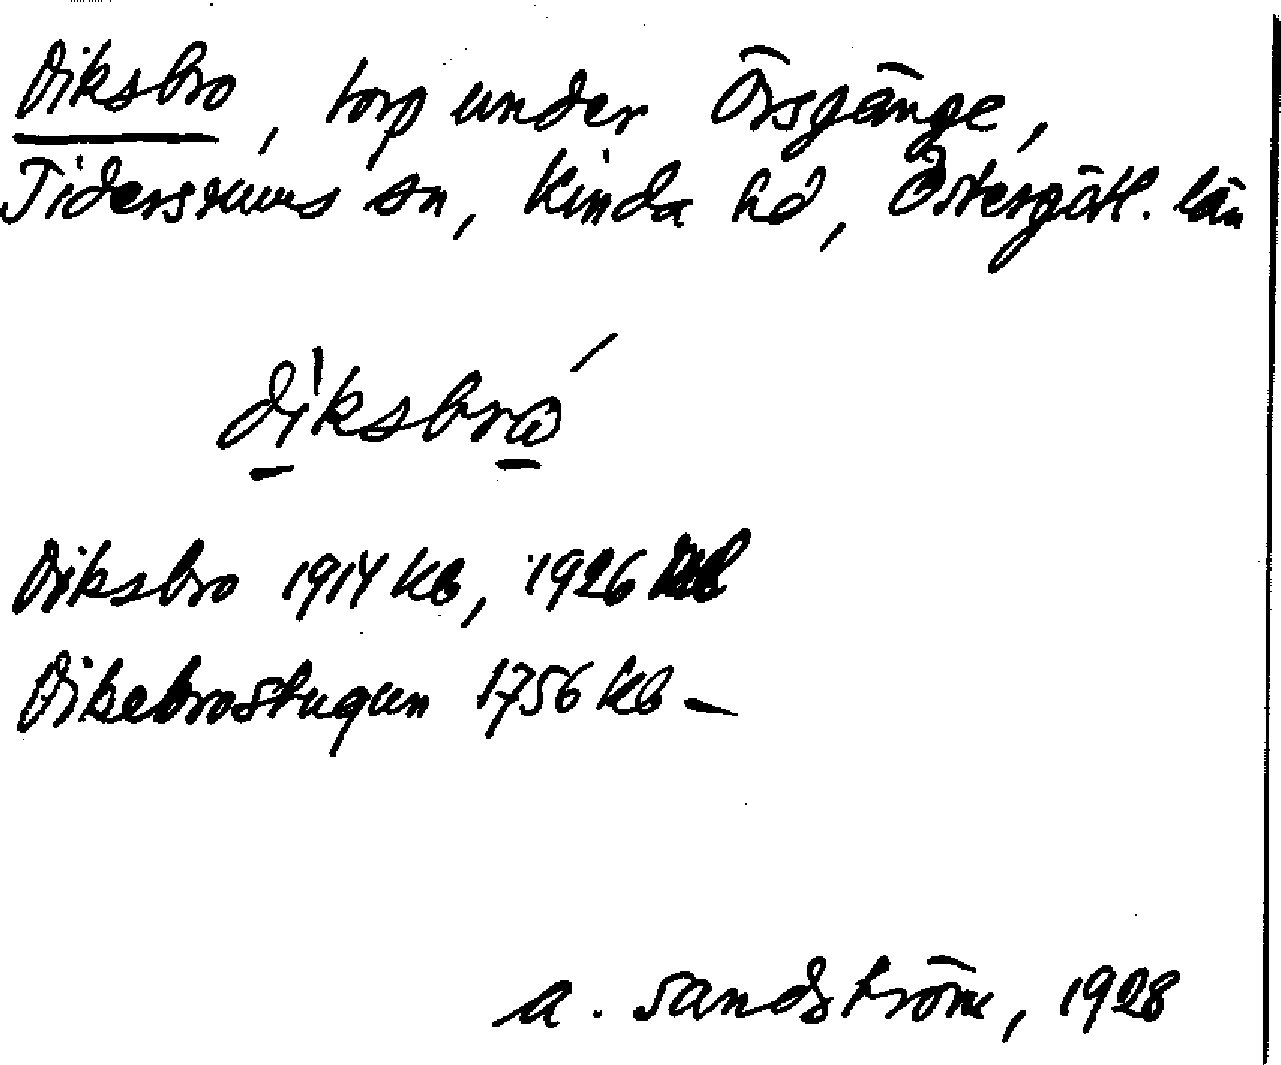 Diksbro, torp under Örsgänge,
Tidersrums sn, Kinda hd, Östergötl. län
diksbrω
Diksbro 1914 kb, 1926
Dikebrostugun 1756 kb –
A. Sandström, 1928